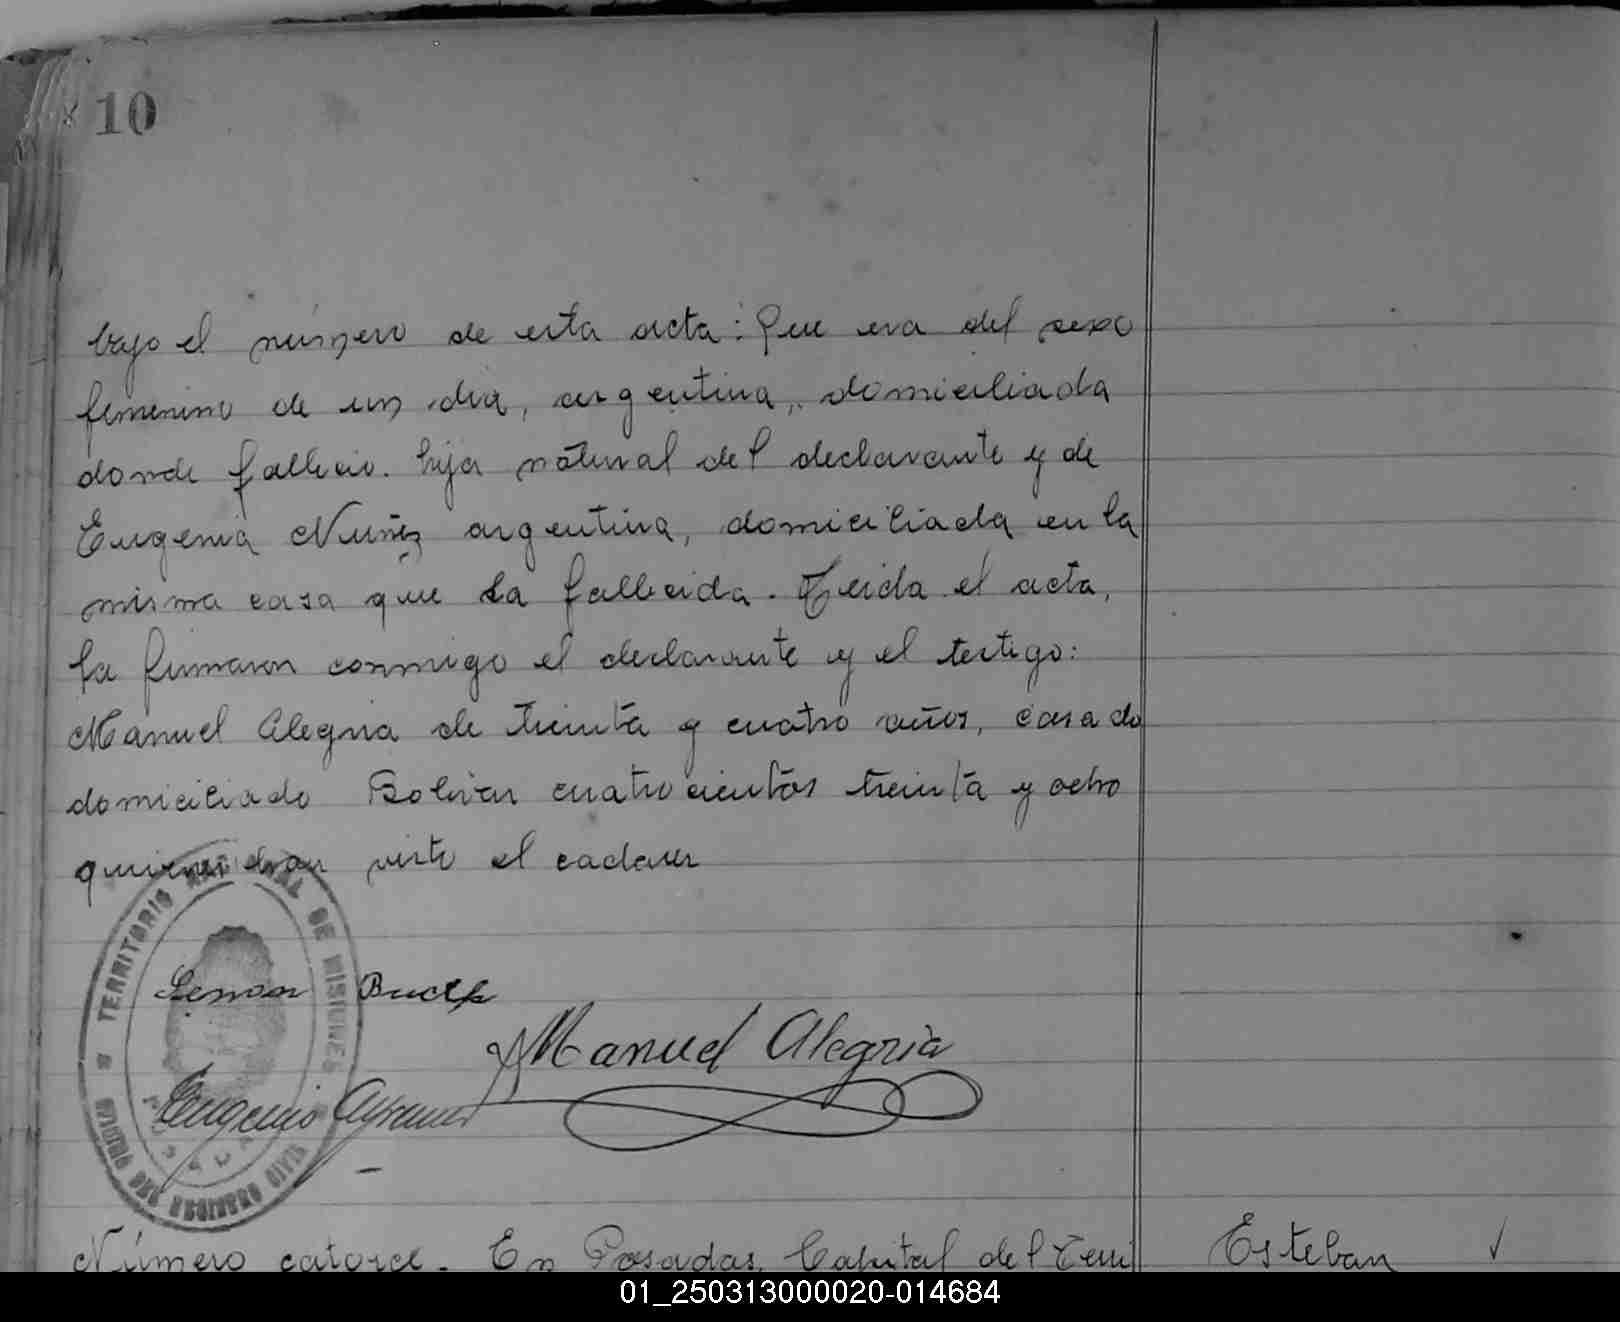 10
bajo el número de esta acta: Que era del sexo
femenino de un dia, argentina, domiciliada
donde fallecio. hija natural del declarante y de
Eugenia Nuñez argentina, domiciliada en la
misma casa que la fallecida. Leida el acta,
la firmaron conmigo el declarante y el testigo:
Manuel Alegria de treinta y cuatro años, casado
domiciliado Bolivar cuatrocientos treinta y ocho
quienes han visto el cadaver
TERRITORIO NACIONAL DE MISIONES
Manuel Alegria
Eugenio
POSADAS
REGISTRO CIVIL
Número catorce. En Posadas, Capital del Terri
Esteban
01_250313000020-014684